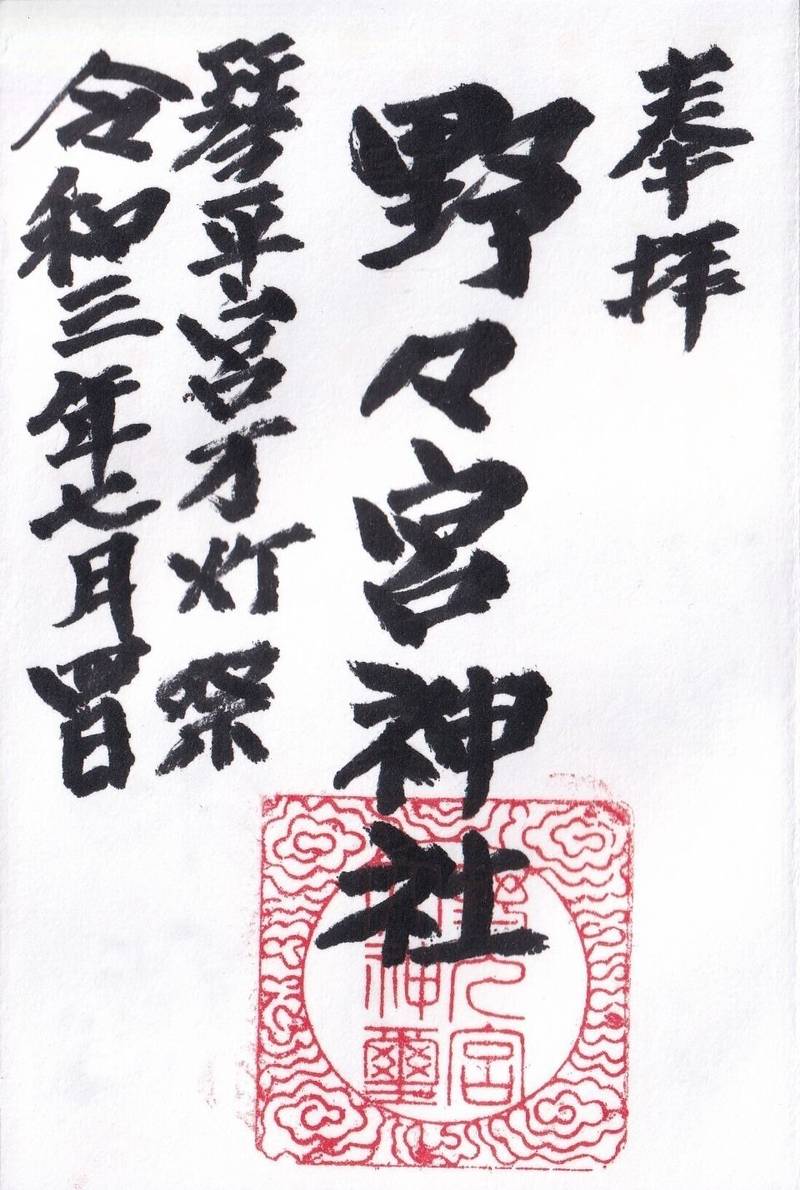 奉拝
野々宮神社
琴平宮万灯祭
令和三年七月四日